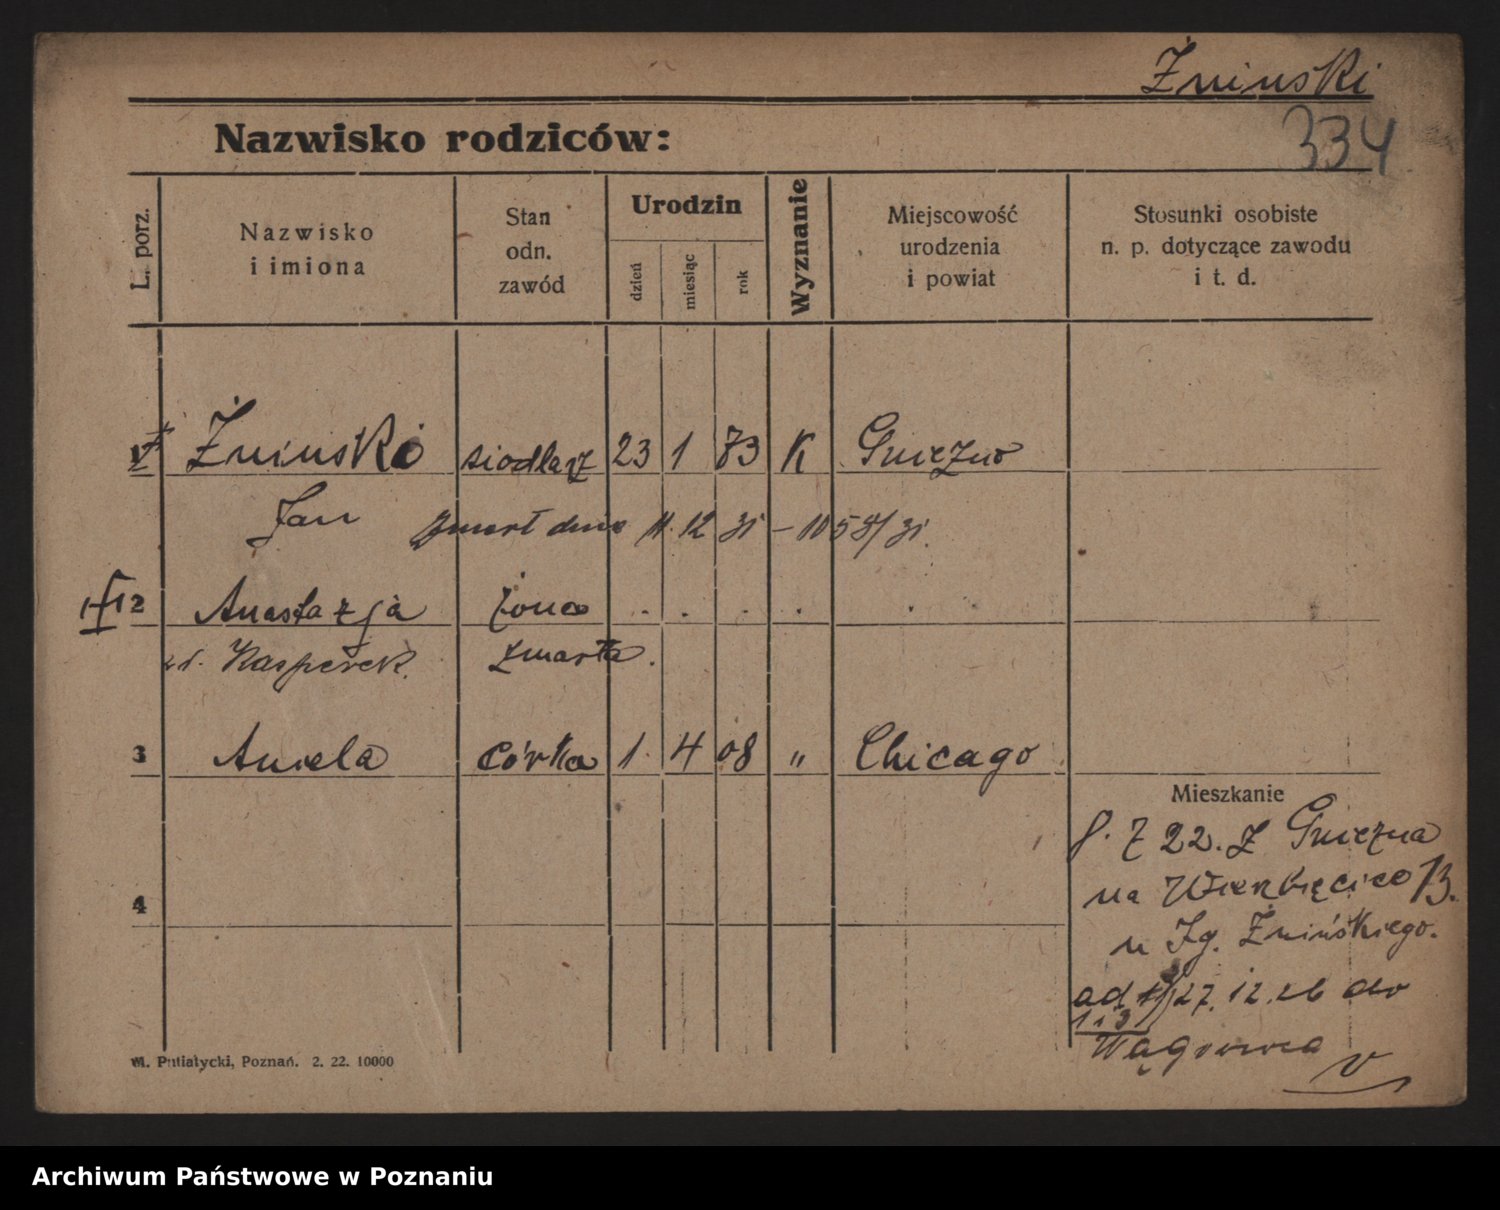 Żninski
334
Nazwisko rodziców:
L. porz.
Nazwisko
i imiona
Stan
odn.
zawód
Urodzin
dzień
miesiąc
rok
Wyznanie
Miejscowość
urodzenia
i powiat
Stosunki osobiste
n. p. dotyczące zawodu
i t. d.
1 Żninski siodlarz 23 1 73 K Gniezno
Jan zmarł dnia 11. 12 31 – 1058/31.
2 Anastazja żona . . . . .
Kasperek. zmarła.
3 Aniela córka 1. 4 08 " Chicago
4
Mieszkanie
8. 7 22. z Gniezna
na Wierzbięcice 13.
u Ig. Żnińskiego.
ad 27. 12. 26 do
1 i 3
Wągrowca
Putiatycki, Poznań. 2. 22. 10000
Archiwum Państwowe w Poznaniu